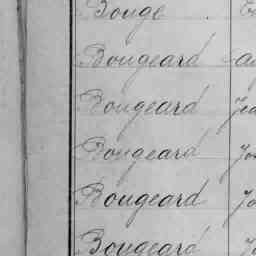 Bouge
Bougeard
Bougeard
Bougeard
Bougeard
Bougeard